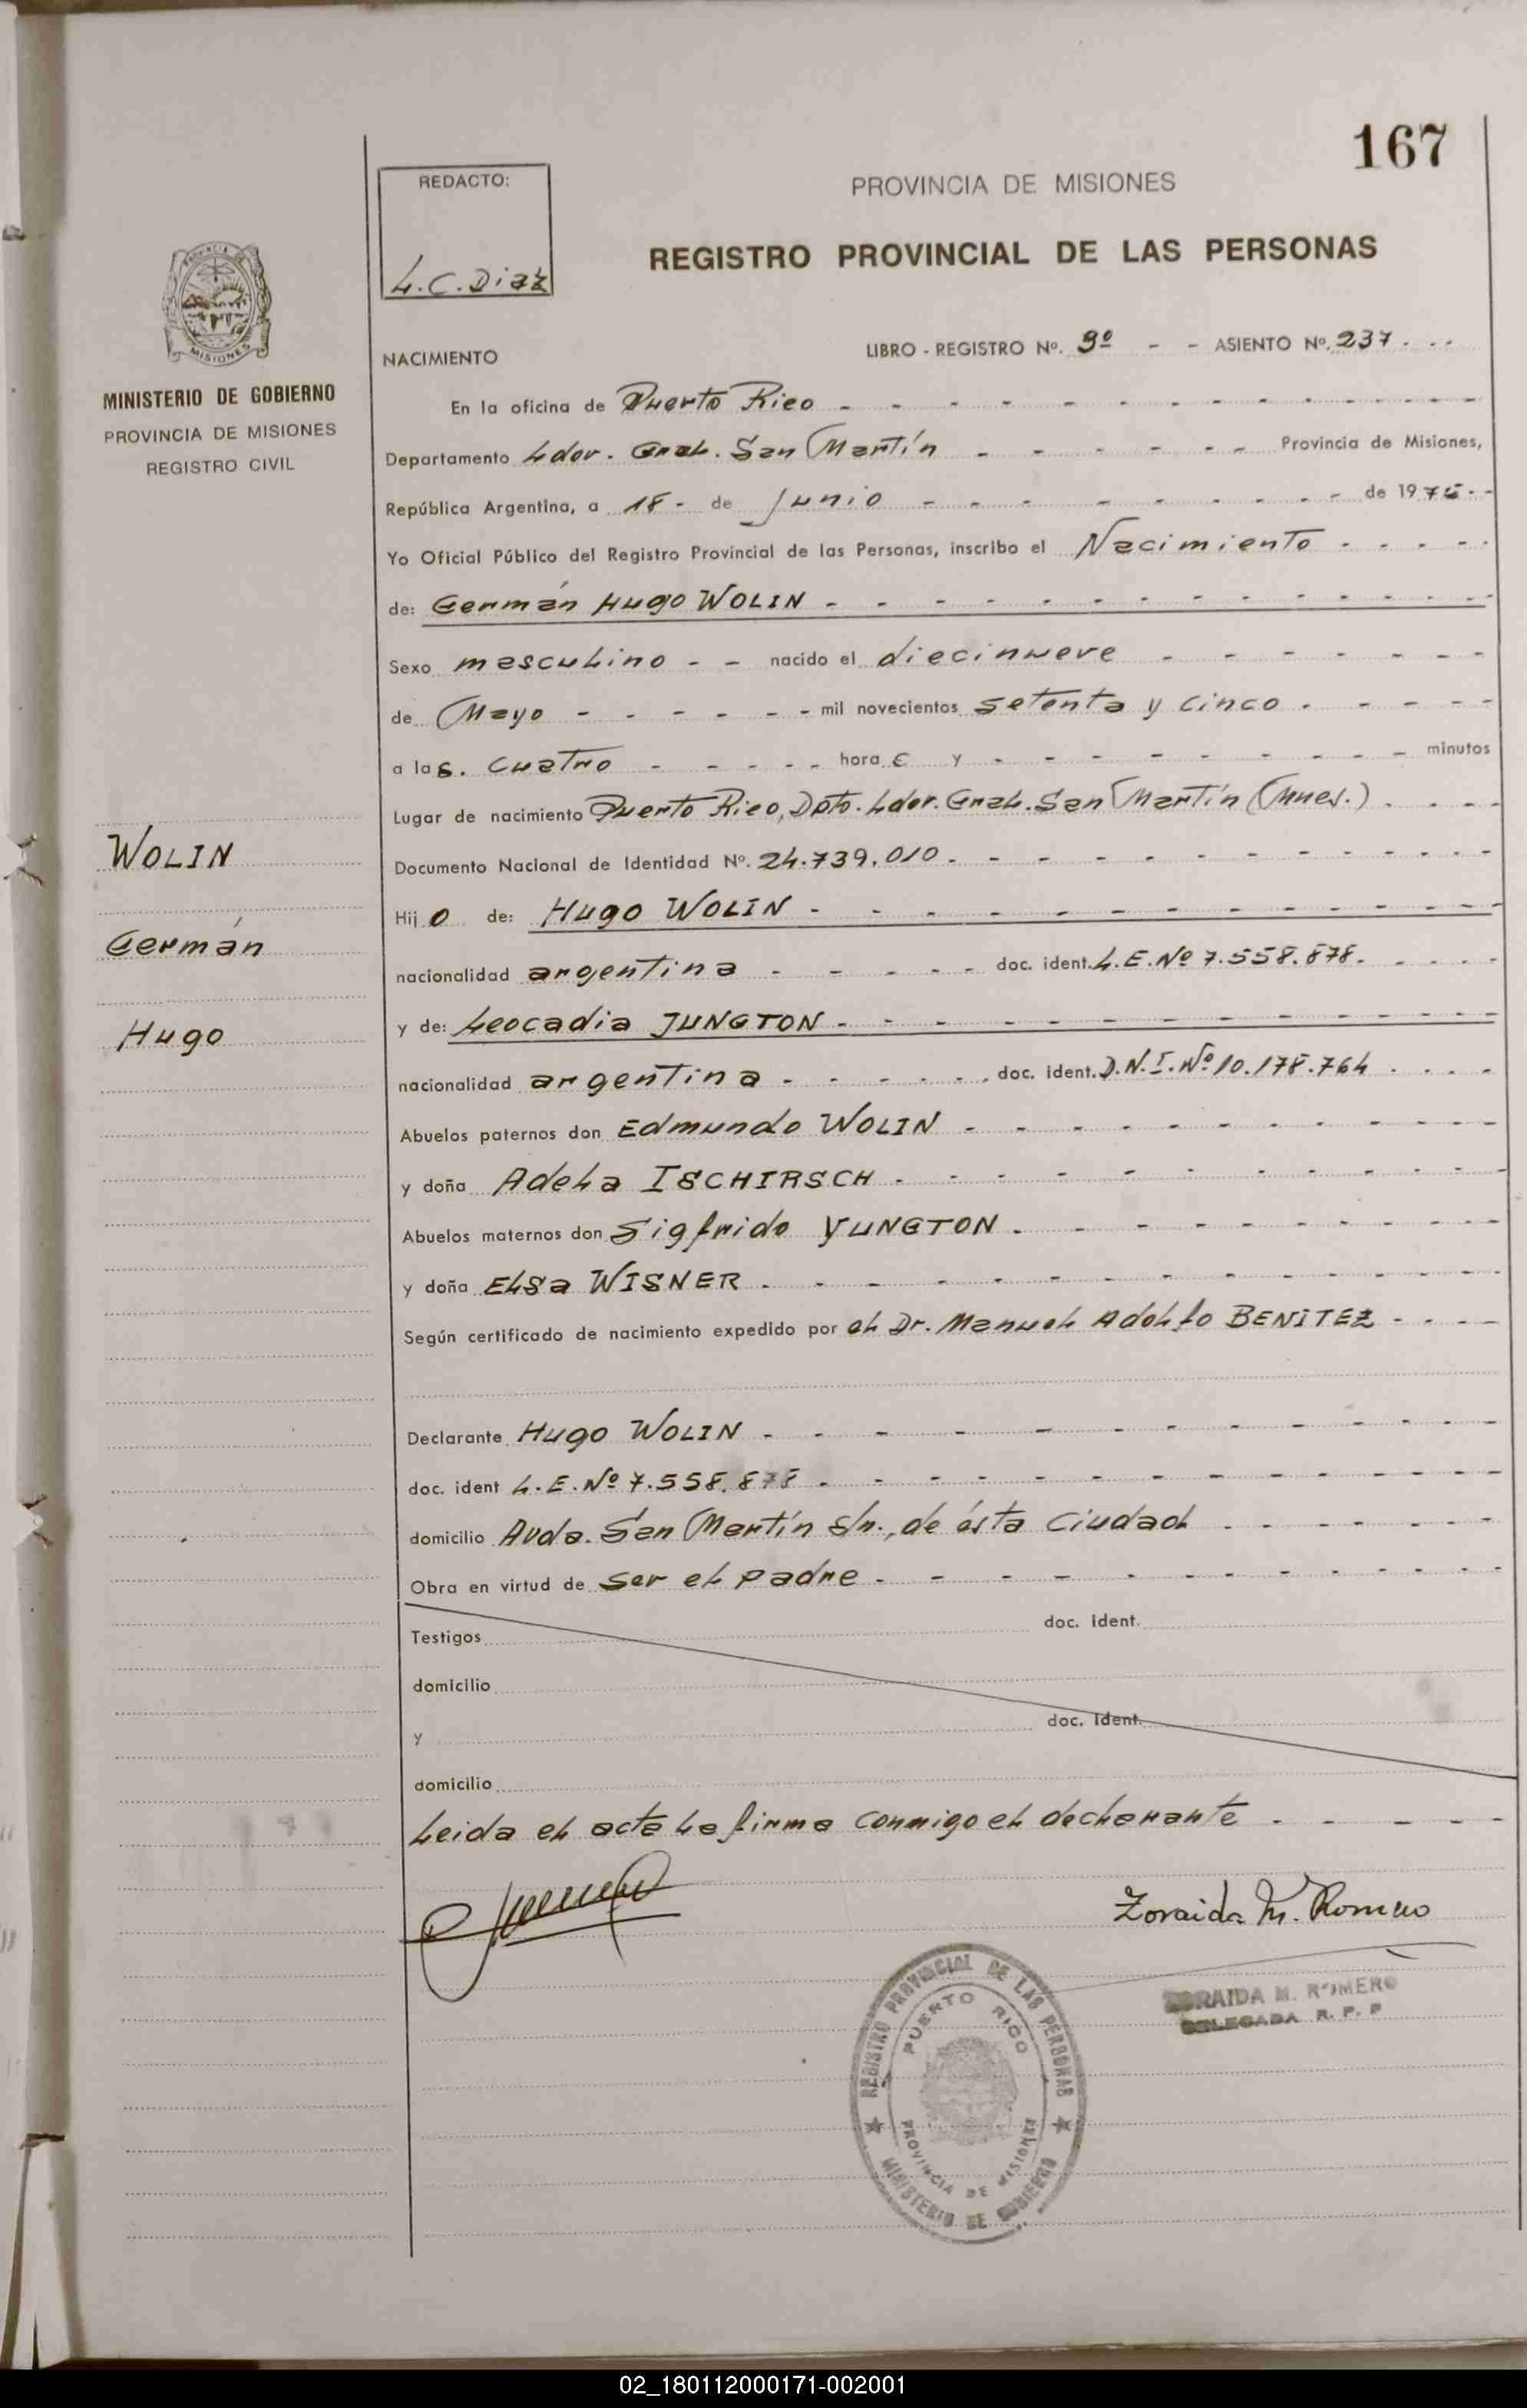 167
REDACTO:
L.C. Diaz
PROVINCIA DE MISIONES
REGISTRO PROVINCIAL DE LAS PERSONAS
PROVINCIA DE
MISIONES
MINISTERIO DE GOBIERNO
PROVINCIA DE MISIONES
REGISTRO CIVIL
NACIMIENTO LIBRO - REGISTRO Nº. 9º - - ASIENTO Nº. 237 . . .
En la oficina de Puerto Rico
Departamento Ldor. Gral. San Martín Provincia de Misiones,
República Argentina, a 18 - de Junio de 1975
Yo Oficial Público del Registro Provincial de las Personas, inscribo el Nacimiento
de: Germán Hugo WOLIN
Sexo masculino - - nacido el diecinueve
de Mayo mil novecientos setenta y cinco
a las. cuatro hora s y minutos
Lugar de nacimiento Puerto Rico, Dpto. Ldor. Gral. San Martín (Mnes.)
Documento Nacional de Identidad Nº. 24.739.010
Hijo de: Hugo WOLIN
nacionalidad argentina doc. ident. L.E. Nº 7.558.878.
y de: Leocadia JUNGTON
nacionalidad argentina doc. ident. D.N.I. Nº 10.178.764
Abuelos paternos don Edmundo WOLIN
y doña Adela ISCHIRSCH
Abuelos maternos don Sigfrido YUNGTON
y doña Elsa WISNER
Según certificado de nacimiento expedido por el Dr. Manuel Adolfo BENITEZ
Declarante Hugo WOLIN
doc. ident L.E. Nº 7.558.878
domicilio Avda. San Martín s/n., de ésta Ciudad
Obra en virtud de ser el padre
Testigos doc. ident.
domicilio
y doc. ident.
domicilio
Leida el acta la firma conmigo el declarante
WOLIN
Germán
Hugo
Zoraida M. Romero
ZORAIDA M. ROMERO
DELEGADA R. P. P
REGISTRO PROVINCIAL DE LAS PERSONAS
PUERTO RICO
PROVINCIA DE MISIONES
MINISTERIO DE GOBIERNO
02_180112000171-002001